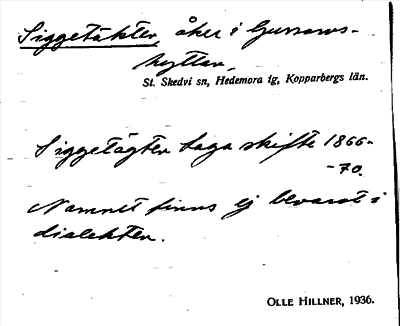 Siggetäkten, åker i Gussarvs-
hyttan,
St. Skedvi sn, Hedemora tg, Kopparbergs län.
Siggetägten laga skifte 1866-
-70.
Namnet finns ej bevarat i
dialekten.
OLLE HILLNER, 1936.